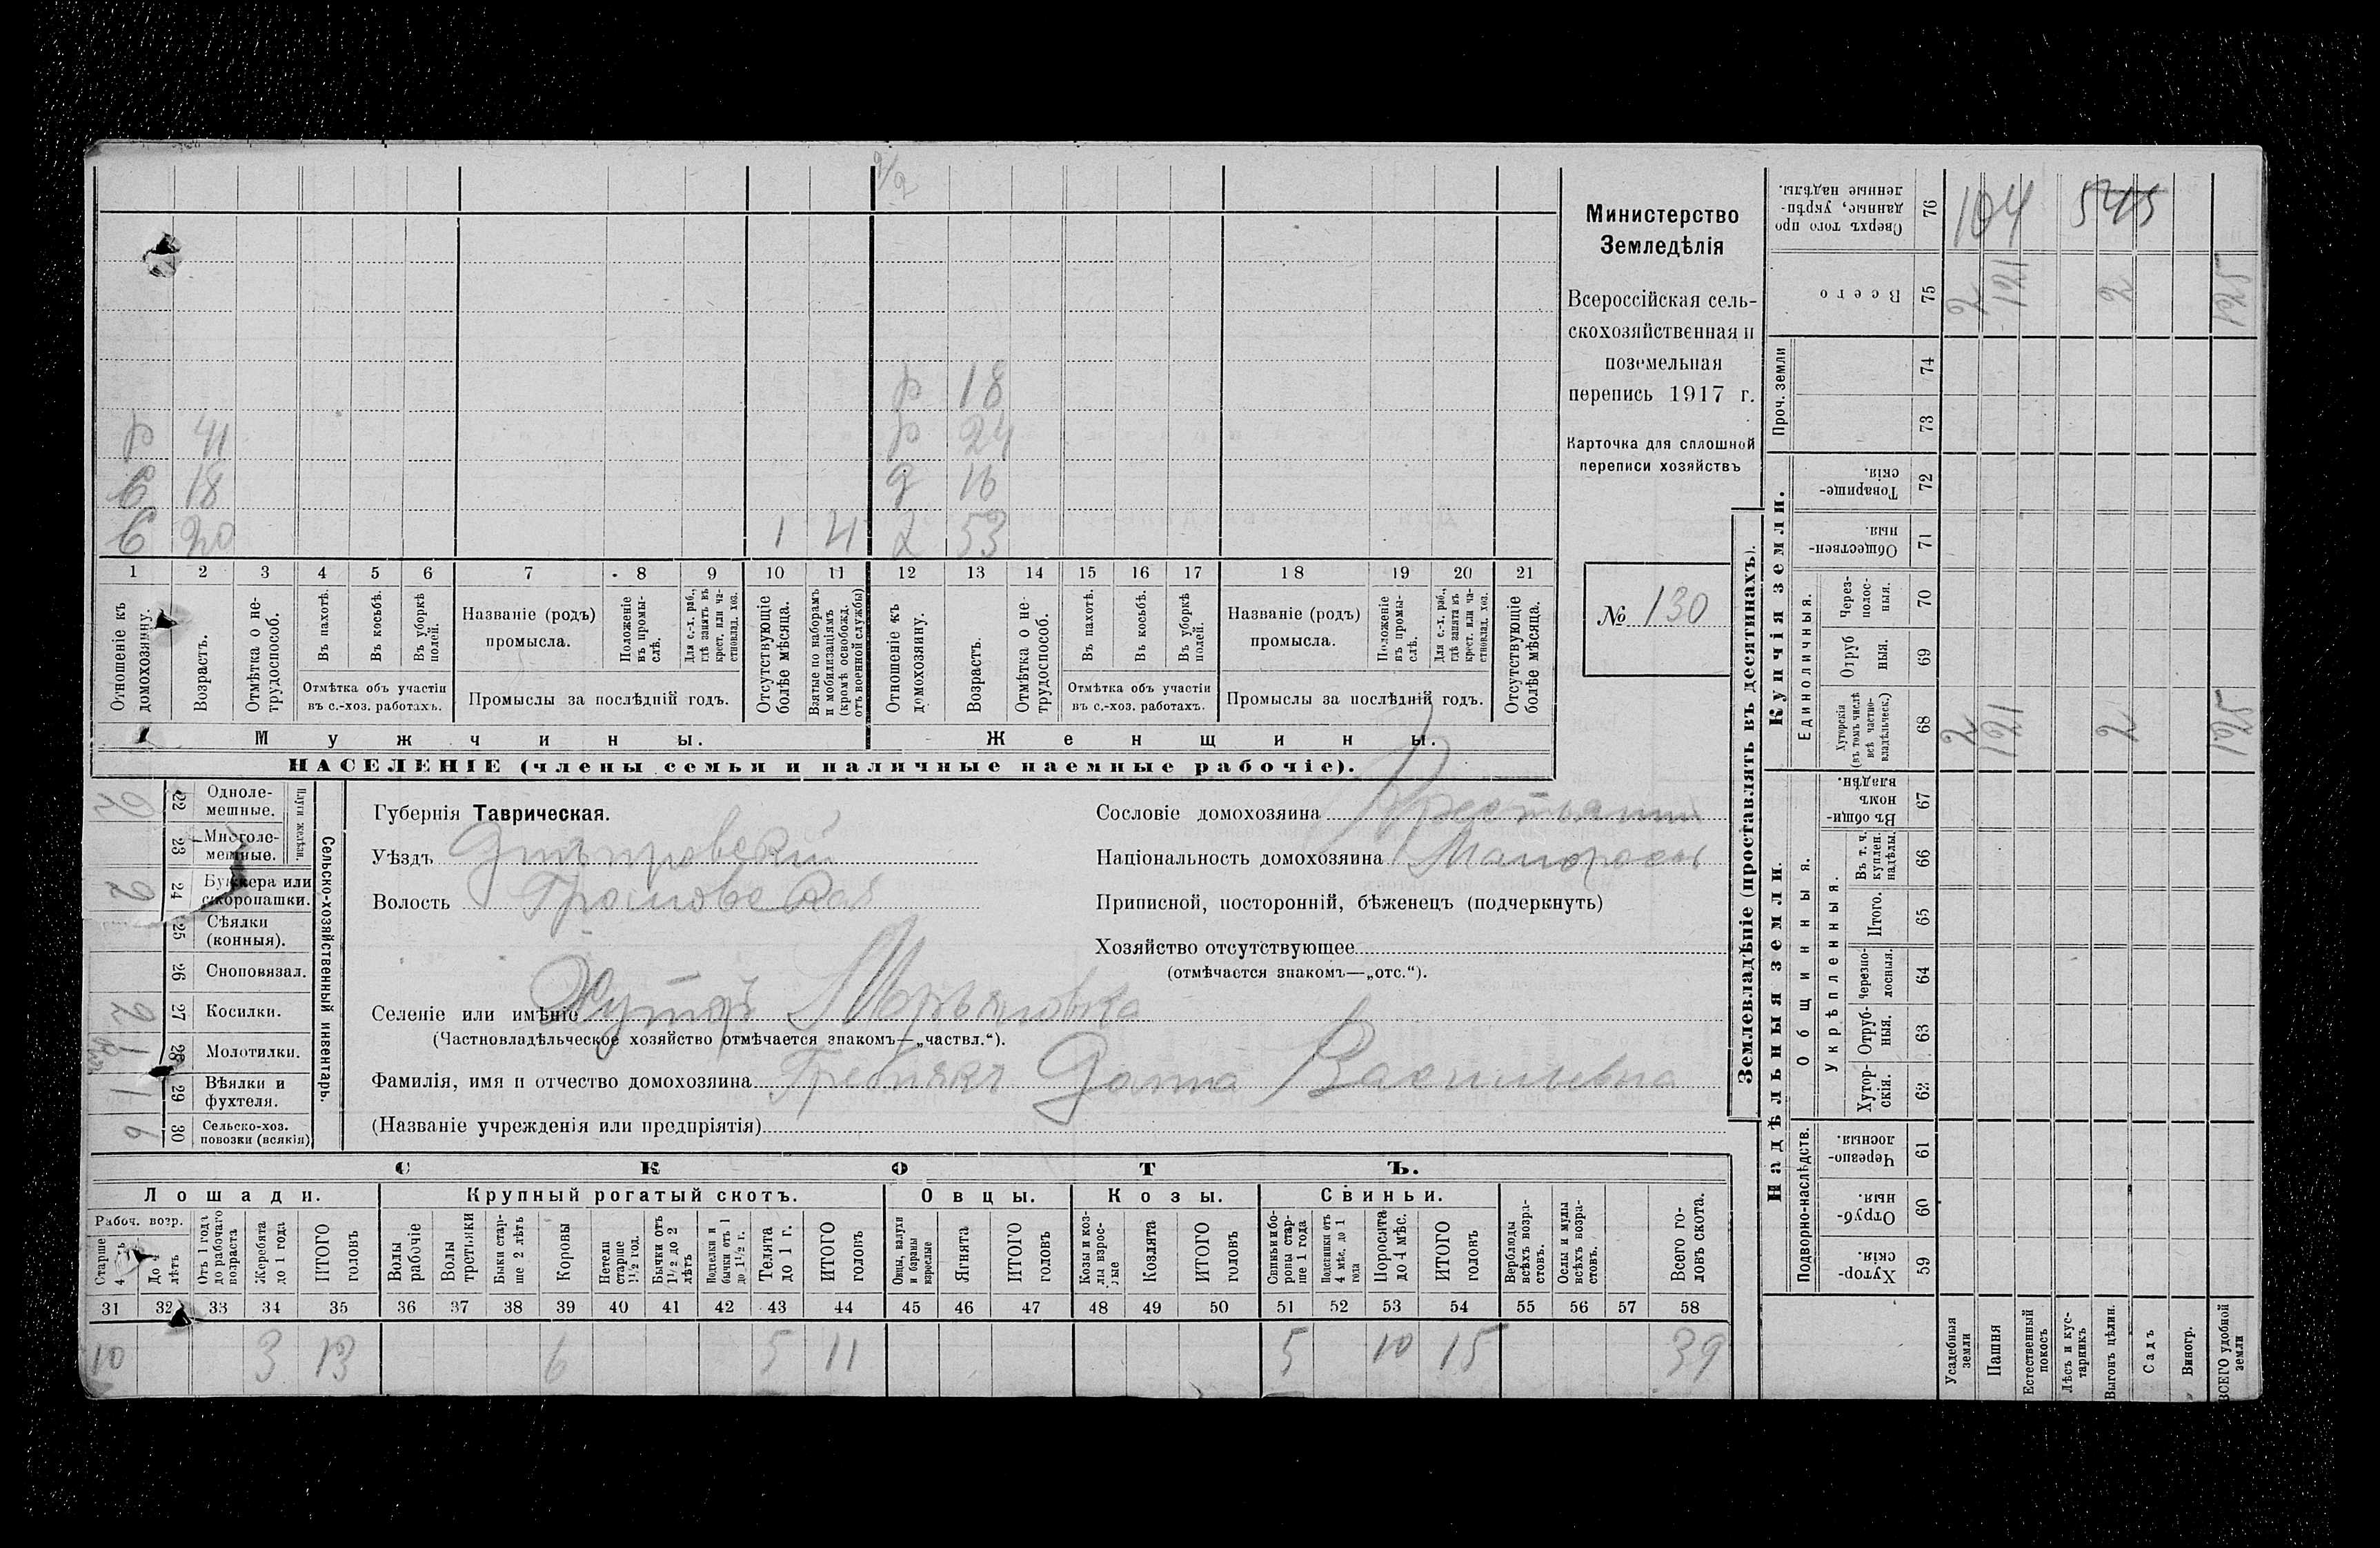 9/2
р 18
р 41 р 24
С 18 д 16
С 20 1 Ч1 Х 53
1 2 3 4 5 6 7 8 9 10 11 12 13 14 15 16 17 18 19 20 21
Отношеніе къ домохозяину.
Возрастъ.
Отмѣтка о не-
трудоспособ.
Въ пахотѣ.
Въ косьбѣ.
Въ уборкѣ
полей.
Отмѣтка объ участіи
въ с.-хоз. работахъ.
Названіе (родъ)
промысла.
Положеніе
въ промы-
слѣ.
Для с.-х. раб.,
гдѣ занятъ въ
крест. или ча-
стновлад. хоз.
Промыслы за послѣдній годъ.
Отсутствующіе
болѣе мѣсяца.
Взятые по наборамъ
и мобилизаціямъ
(кромѣ освобожд.
отъ военной службы)
Отношеніе къ
домохозяину.
Возрастъ.
Отмѣтка о не-
трудоспособ.
Въ пахотѣ.
Въ косьбѣ.
Въ уборкѣ
полей.
Отмѣтка объ участіи
въ с.-хоз. работахъ.
Названіе (родъ)
промысла.
Положеніе
въ промы-
слѣ.
Для с.-х. раб.,
гдѣ занята въ
крест. или ча-
стновлад. хоз.
Промыслы за послѣдній годъ.
Отсутствующіе
болѣе мѣсяца.
Мужчины.
Женщины.
НАСЕЛЕНІЕ (члены семьи и наличные наемные рабочіе).
Министерство
Земледѣлія
Всероссійская сель-
скохозяйственная и
поземельная
перепись 1917 г.
Карточка для сплошной
переписи хозяйствъ
№ 130
Губернія Таврическая.
Уѣздъ Днѣпровскій
Волость Громовская
Селеніе или имѣніе Хуторъ Марьяновка
(Частновладѣльческое хозяйство отмѣчается знакомъ—„частвл.“).
Фамилія, имя и отчество домохозяина Гребнякъ Домна Васильевна
(Названіе учрежденія или предпріятія)
Сословіе домохозяина Крестьянин
Національность домохозяина Малороссъ
Приписной, посторонній, бѣженецъ (подчеркнуть)
Хозяйство отсутствующее
(отмѣчается знакомъ—„отс.“).
Сельско-хозяйственный инвентарь.
Плуги желѣзн.
22 Одноле-
мешные.
23 Многоле-
мешные.
2 24 Буккера или
скоропашки.
25 Сѣялки
(конныя).
26 Сноповязал.
2 27 Косилки.
1 28 Молотилки.
1 29 Вѣялки и
фухтеля.
6 30 Сельско-хоз.
повозки (всякія)
СКОТЪ.
Лошади.
Рабоч. возр.
Старше
4 лѣтъ
До 4
лѣтъ
Отъ 1 года
до рабочаго
возраста
Жеребята
до 1 года
ИТОГО
головъ
Крупный рогатый скотъ.
Волы
рабочіе
Волы
третьяки
Быки стар-
ше 2 лѣтъ
Коровы
Нетели
старше
1½ год.
Бычки отъ
1½ до 2
лѣтъ
Подтелки и
бычки отъ 1
до 1½ г.
Телята
до 1 г.
ИТОГО
головъ
Овцы.
Овцы, валухи
и бараны
взрослые
Ягнята
ИТОГО
головъ
Козы.
Козы и коз-
лы взрос-
лые
Козлята
ИТОГО
головъ
Свиньи.
Свиньи и бо-
ровы стар-
ше 1 года
Подсвинки отъ
4 мѣс. до 1
года
Поросята
до 4 мѣс.
ИТОГО
головъ
Верблюды
всѣхъ возра-
стовъ.
Ослы и мулы
всѣхъ возра-
стовъ.
Всего го-
ловъ скота.
31 32 33 34 35 36 37 38 39 40 41 42 43 44 45 46 47 48 49 50 51 52 53 54 55 56 57 58
10 3 13 6 5 11 5 10 15 39
Землевладѣніе (проставлять въ десятинахъ).
Сверхъ того про
данные, укрѣп-
ленные надѣлы. 76 104 545
Всего 75 2 121 2 125
Проч. земли
74
73
Купчія земли.
Товарище-
скія. 72
Обществен-
ныя 71
Единоличныя.
Через-
полос-
ныя. 70
Отруб
ныя. 69
Хуторскія
(въ томъ числѣ
всѣ частно-
владѣльческ.) 68 2 121 2 125
Надѣльныя земли.
Общинныя.
Въ общи-
номъ
владѣн. 67
Укрѣпленныя.
Въ т. ч.
куплен.
надѣлы. 66
Итого. 65
Черезпо-
лосныя. 64
Отруб-
ныя. 63
Хутор-
скія. 62
Подворно-наслѣдств.
Черезпо-
лосныя. 61
Отруб-
ныя. 60
Хутор-
скія. 59
Усадебныя
земли
Пашня
Естественный
покосъ
Лѣсъ и кус-
тарникъ
Выгонъ цѣлин.
Садъ
Виногр.
ВСЕГО удобной
земли